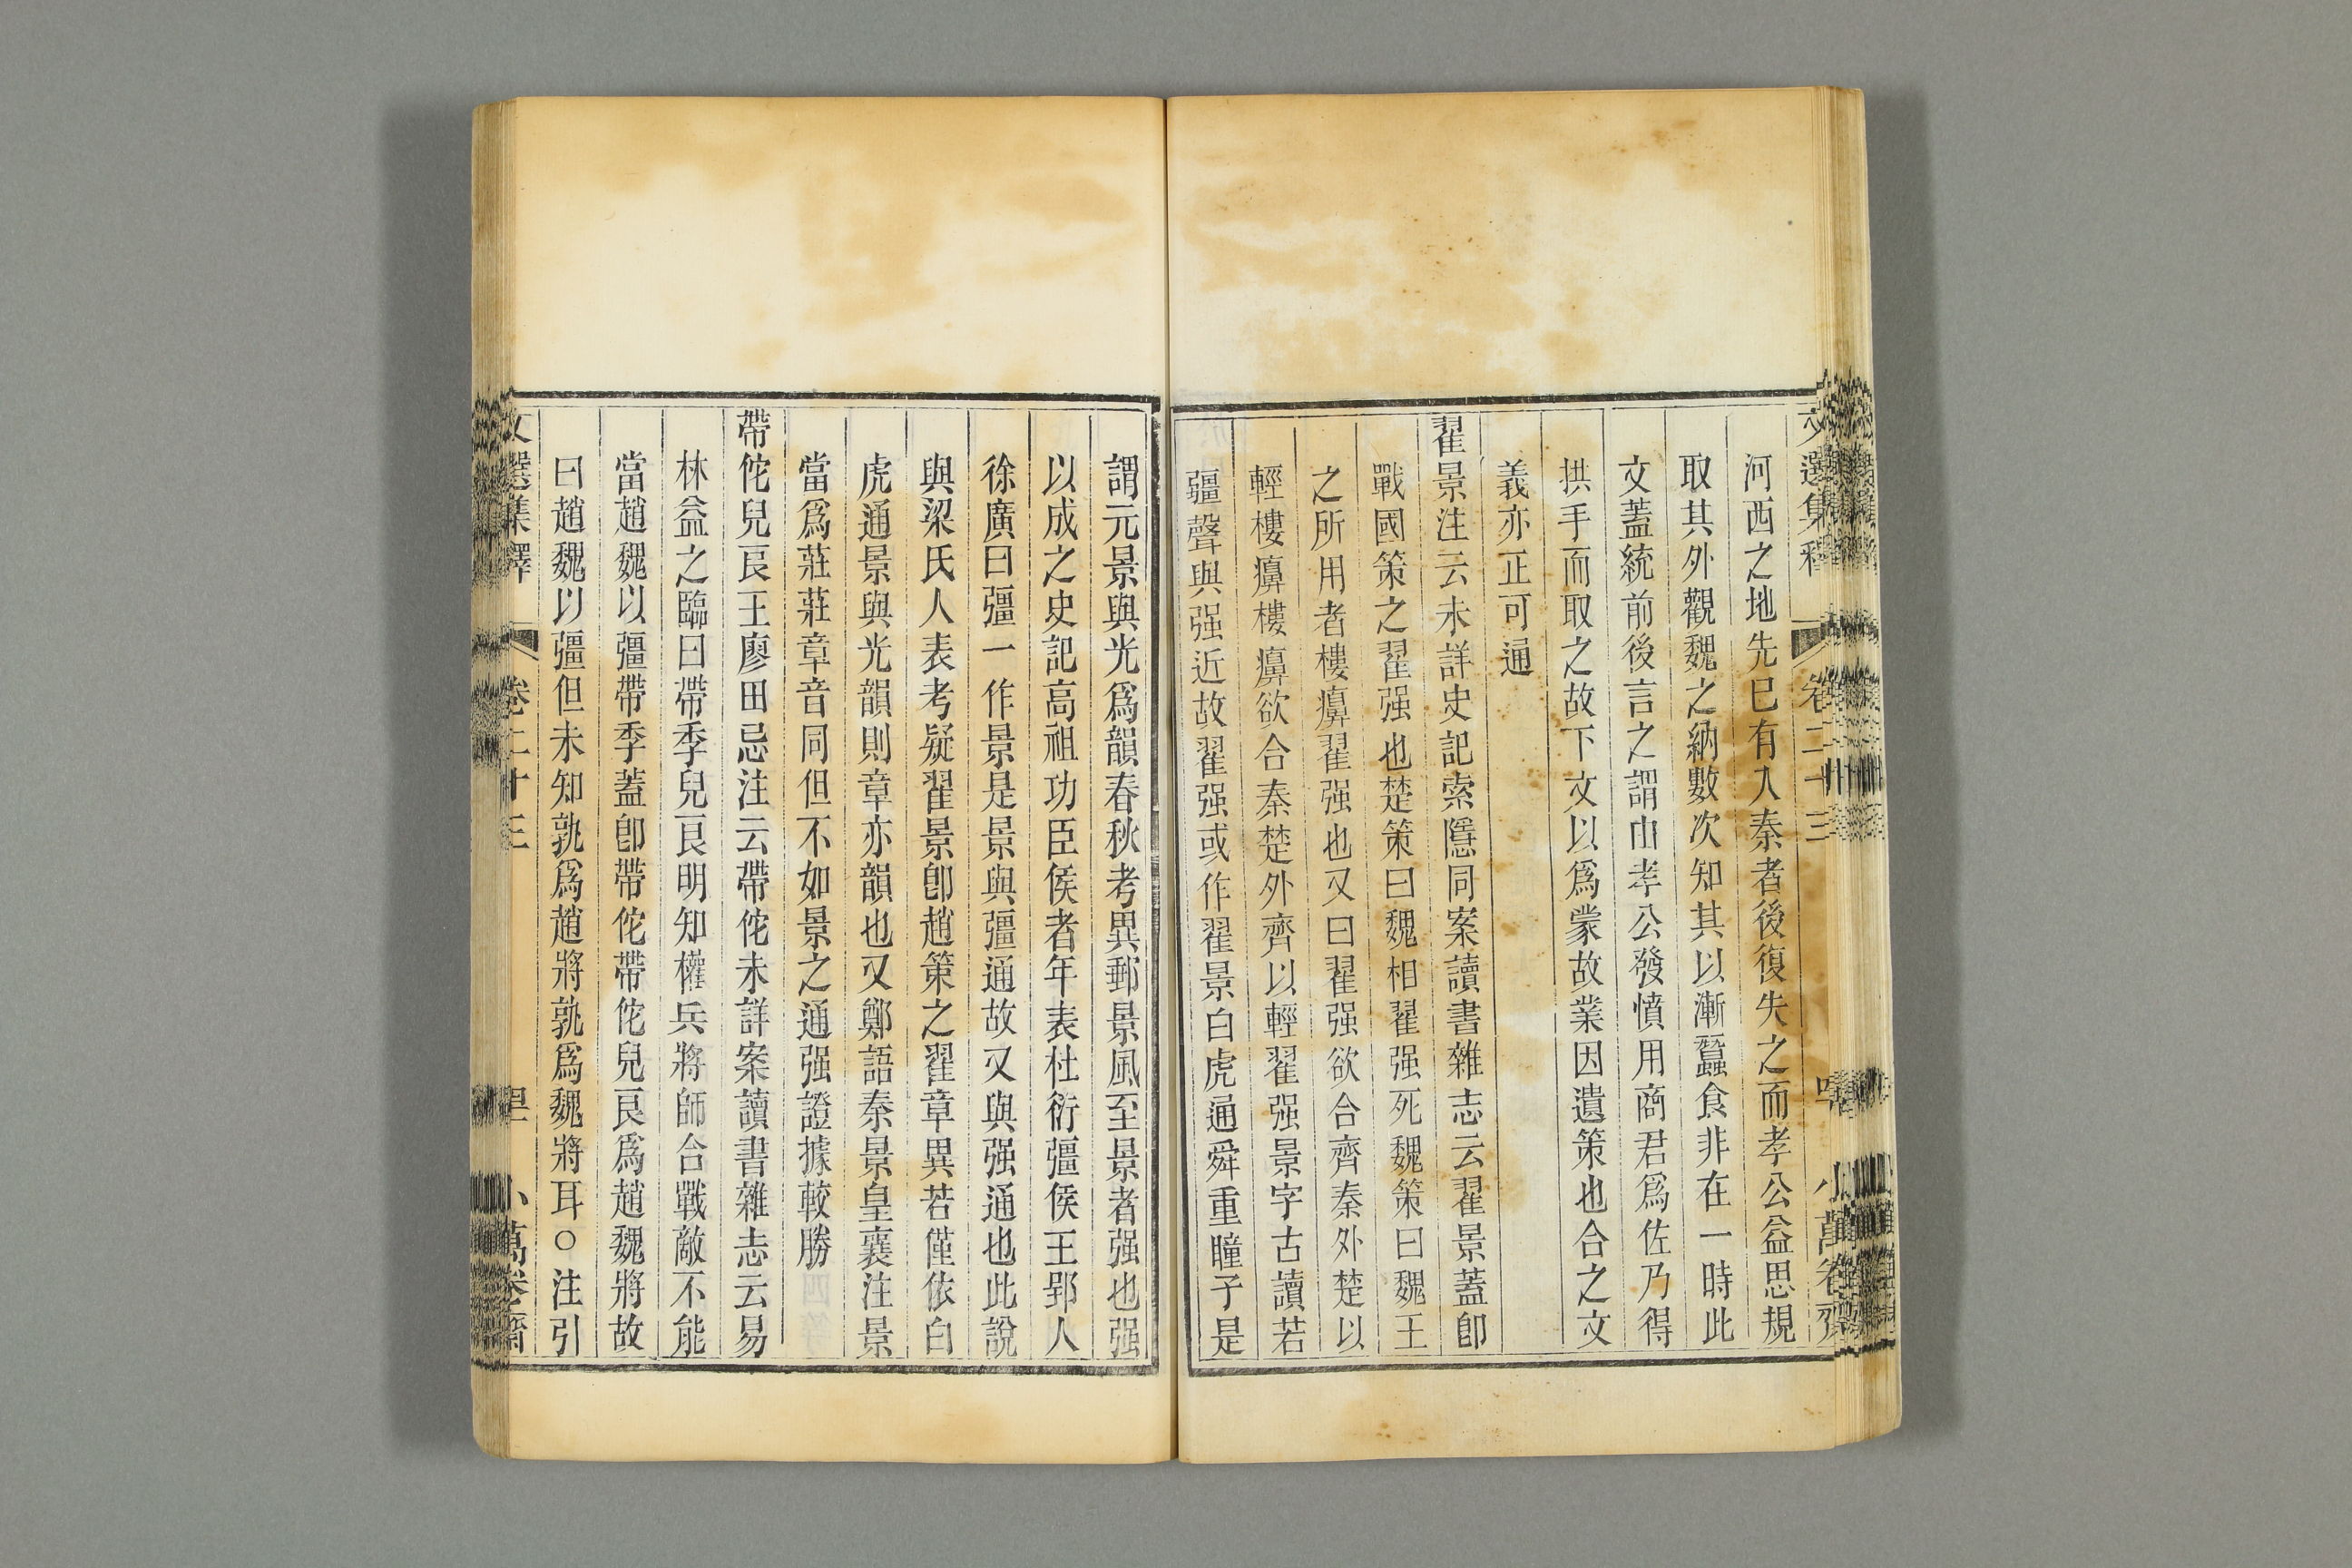 文選集釋 卷二十三 小萬卷齋
河西之地先已有入秦者後復失之而孝公益思規
取其外觀魏之納數次知其以漸蠶食非在一時此
文蓋統前後言之謂由孝公發憤用商君爲佐乃得
拱手而取之故下文以爲蒙故業因遺策也合之文
義亦正可通
翟景注云未詳史記索隱同案讀書雜志云翟景蓋卽
戰國策之翟强也楚策曰魏相翟强死魏策曰魏王
之所用者樓㢏翟强也又曰翟强欲合齊秦外楚以
輕樓㢏樓㢏欲合秦楚外齊以輕翟强景字古讀若
疆聲與强近故翟强或作翟景白虎通舜重瞳子是
謂元景與光爲韻春秋考異郵景風至景者强也强
以成之史記高祖功臣侯者年表杜衍彊侯王郢人
徐廣曰彊一作景是景與彊通故又與强通也此說
與梁氏人表考疑翟景卽趙策之翟章異若僅依白
虎通景與光韻則章亦韻也又鄭語秦景皇襄注景
當爲莊莊章音同但不如景之通强證據較勝
帶佗兒良王廖田忌注云帶佗未詳案讀書雜志云易
林益之臨曰帶季兒良明知權兵將師合戰敵不能
當趙魏以彊帶季蓋卽帶佗帶佗兒良爲趙魏將故
曰趙魏以彊但未知孰爲趙將孰爲魏將耳○注引
文選集釋 卷二十三 小萬卷齋